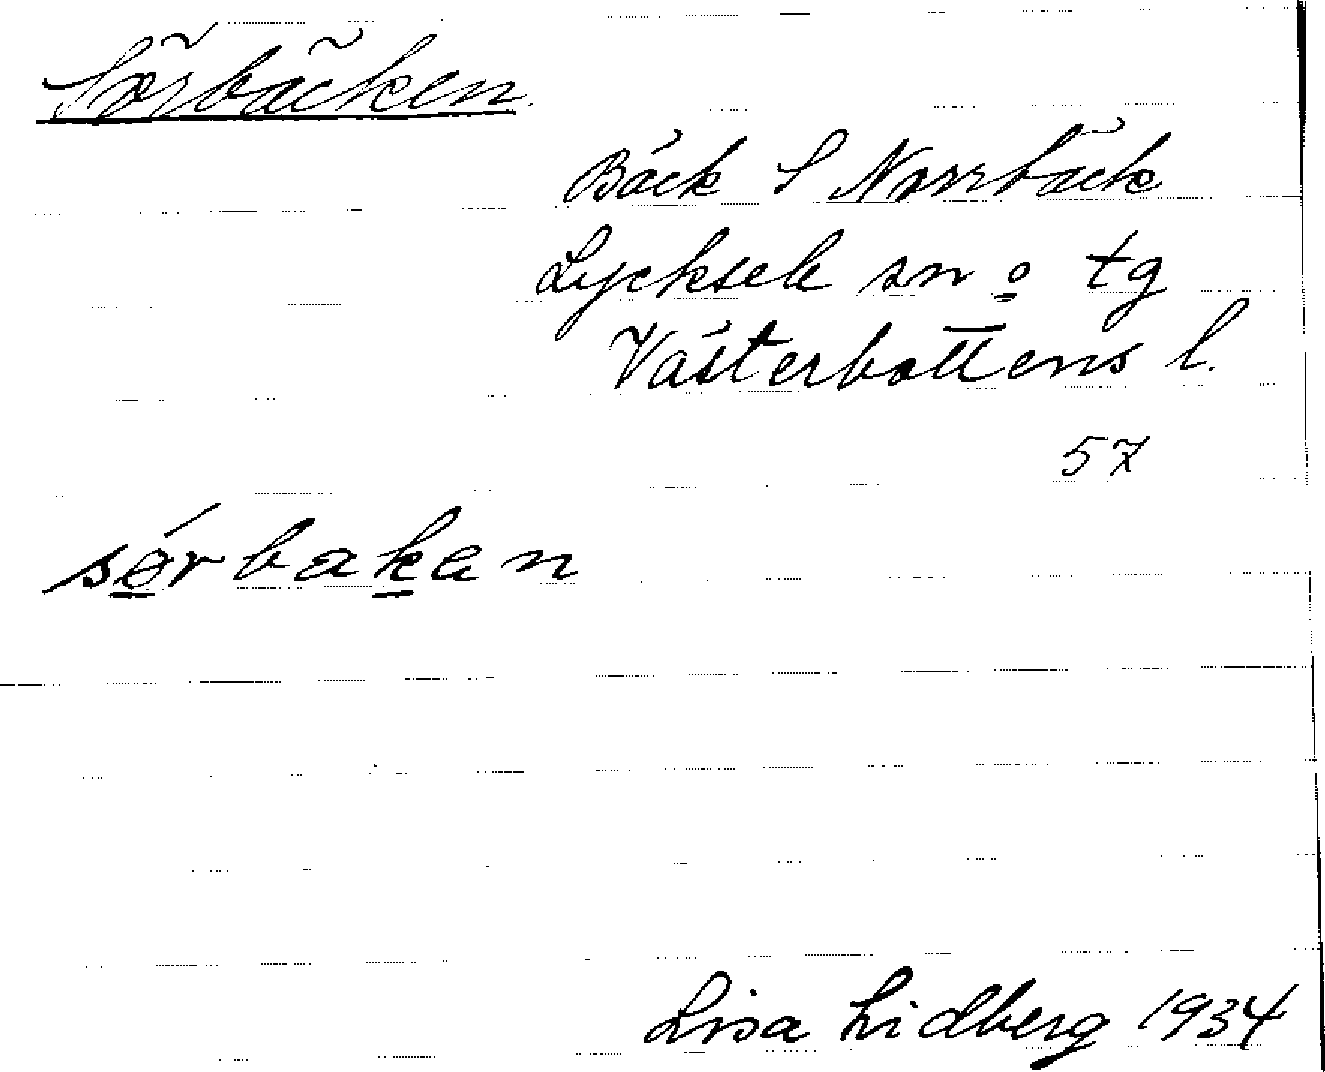 Sörbäcken.
Bäck S Norrbäck
Lycksele sn o tg
Västerbottens l.
57
sørbakan
Lisa Lidberg 1934